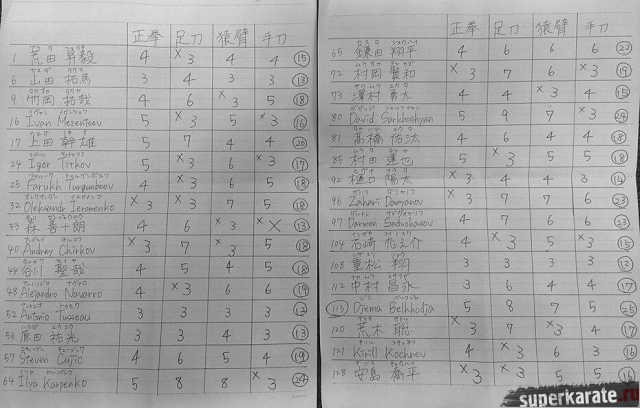 正拳 足刀 猿臂 手刀
1 荒田 昇毅 4 ×3 4 4 ⑮
6 山田 拓馬 3 4 3 3 ⑬
9 竹岡 拓哉 4 6 ×3 5 ⑱
16 Ivan Mezentsev 5 ×3 5 ×3 ⑯
17 上田 幹雄 5 7 4 4 ⑳
24 Igor Titkov 5 ×3 6 ×3 ⑰
25 Farukh Turgunboev 4 ×3 6 5 ⑱
32 Oleksandr Ieromenko ×3 ×3 7 5 ⑱
33 森 善十朗 4 6 ×3 ⑬
40 Andrey Chirkov ×3 7 ×3 5 ⑱
49 谷川 聖哉 4 5 4 5 ⑱
48 Alejandro Navarro 4 ×3 6 6 ⑲
52 Antonio Tusseau 3 3 3 3 ⑫
56 原田 祐光 3 3 4 3 ⑬
57 Steven Cujic 4 6 5 4 ⑲
64 Ilya Karpenko 5 8 8 ×3 ㉔
正拳 足刀 猿臂 手刀
65 鎌田 翔平 4 6 6 6 ㉒
72 村岡 賢和 ×3 7 6 ×3 ⑲
73 澤村 勇太 4 4 ×3 4 ⑮
80 David Sarkhoshyan 5 9 7 ×3 ㉔
81 髙橋 佑汰 4 6 4 4 ⑱
85 村田 達也 5 ×3 5 5 ⑱
92 樋口 陽太 ×3 4 4 3 ⑭
96 Zahari Damyanov ×3 7 7 6 ㉓
97 Darmen Sadvokasov 4 7 6 6 ㉓
104 石崎 恋之介 4 ×3 5 ×3 ⑮
108 重松 翔 3 3 3 3 ⑫
112 中村 昌永 3 6 4 4 ⑰
113 Djema Belkhodja 5 8 7 5 ㉕
120 荒木 聡 ×3 7 ×3 4 ⑰
121 Kirill Kochnev 4 ×3 6 3 ⑯
128 安島 喬平 ×3 ×3 5 5 ⑯
superkarate.ru